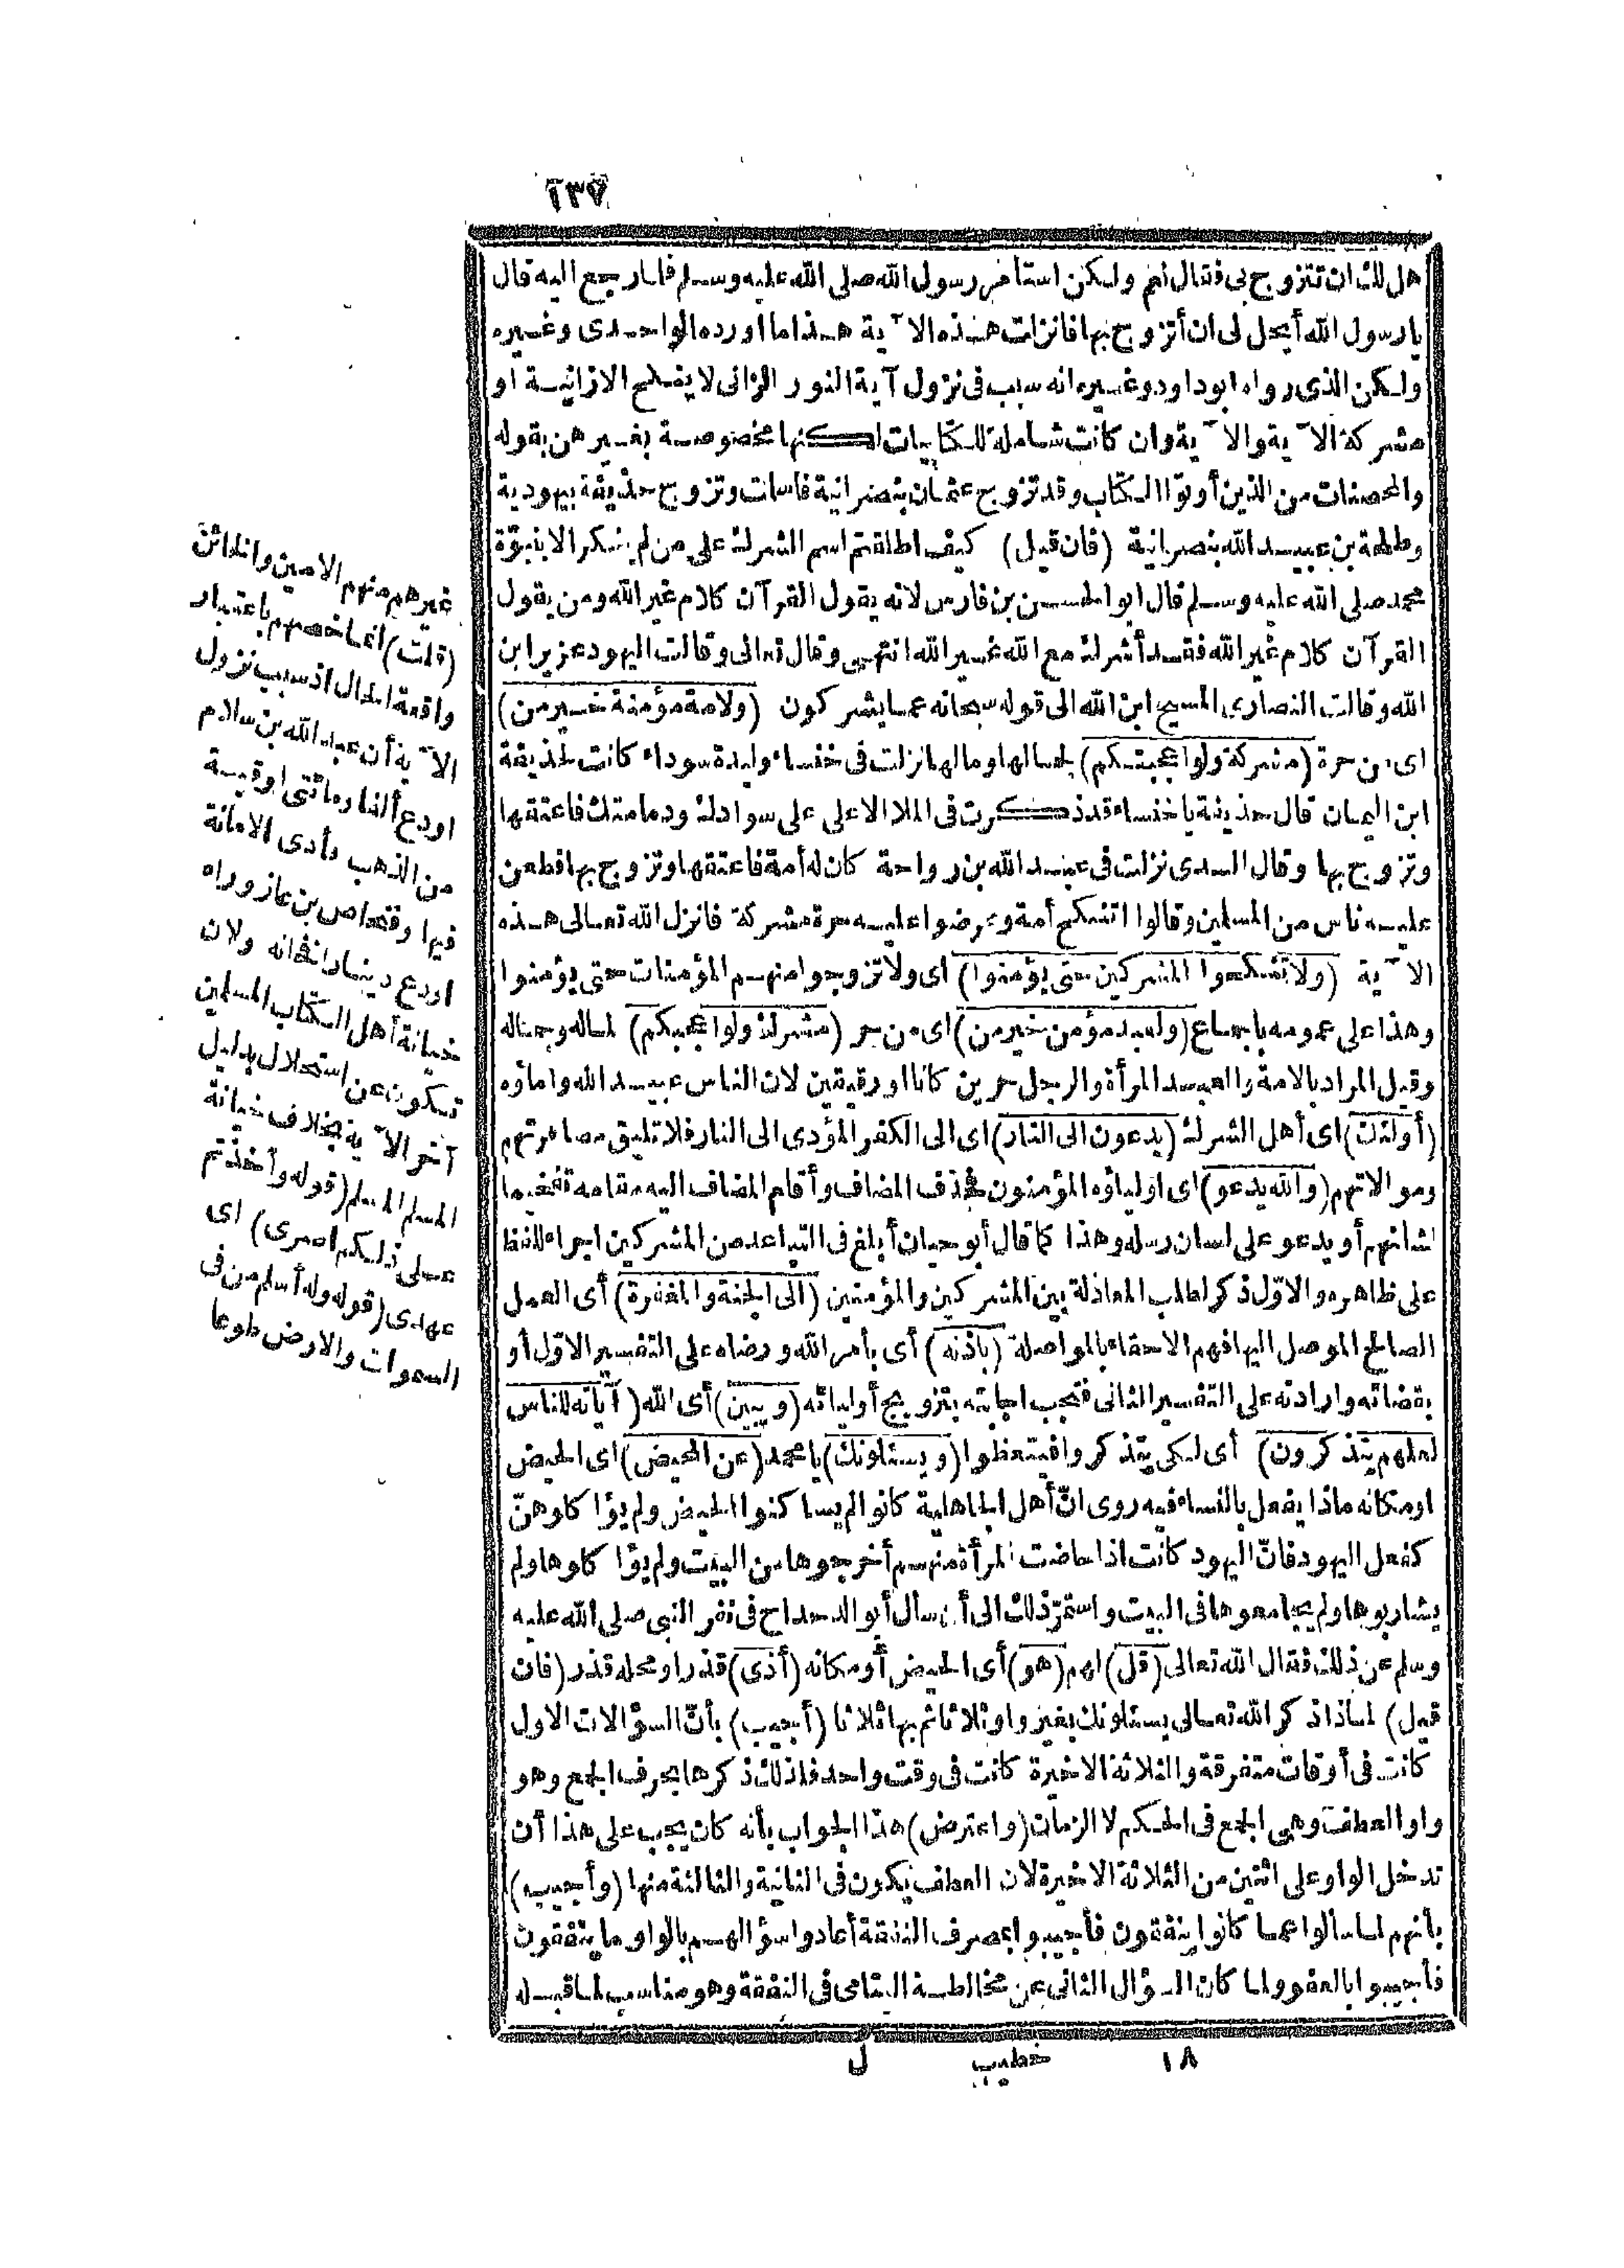 ١٣٧
هل لك ان تتزوج بى فقال نعم ولكن استأمر رسول الله صلى الله عليه وسلم فلما رجع اليه قال
يا رسول الله أيحل لى ان أتزوج بها فانزلت هذه الآية هذا ما اورده الواحدى وغيره
ولكن الذى رواه ابوداود وغيره انه سبب فى نزول آية النور الزانى لا ينكح الا زانية او
مشركة الآية والآية وان كانت شاملة للكتابيات لكنها مخصوصة بغيرهن بقوله
والمحصنات من الذين أوتوا الكتاب وقد تزوج عثمان بنصرانية فاسلت وتزوج حذيفة بيهودية
وطلحة بن عبيد الله بنصرانية (فان قيل) كيف اطلقتم اسم الشرك على من لم ينكر الا بنبوّة
محمد صلى الله عليه وسلم قال ابوالحسن بن فارس لانه يقول القرآن كلام غير الله ومن يقول
القرآن كلام غير الله فقد أشرك مع الله غير الله انتهى وقال تعالى وقالت اليهود عزير ابن
الله وقالت النصارى المسيح ابن الله الى قوله سبحانه عما يشركون (ولامة مؤمنة خير من)
اى من حرة (مشركة ولو اعجبتكم) بجمالها ومالها نزلت فى خنساء وليدة سوداء كانت لحذيفة
ابن اليمان قال حذيفة يا خنساء قد ذكرت فى الملا الاعلى على سوادك ودمامتك فاعتقها
وتزوج بها وقال السدى نزلت فى عبد الله بن رواحة كان له أمة فاعتقها وتزوج بها فطعن
عليه ناس من المسلمين وقالوا اتنكح أمة وعرضوا عليه حرة مشركة فانزل الله تعالى هذه
الآية (ولا تنكحوا المشركين حتى يؤمنوا) اى ولا تزوجوا منهم المؤمنات حتى يؤمنوا
وهذا على عمومه باجماع (ولعبد مؤمن خير من) اى من حر (مشرك ولو اعجبكم) لماله وجماله
وقيل المراد بالامة والعبد المرأة والرجل حرين كانا او رقيقين لان الناس عبيد الله واماؤه
(أولئك) اى أهل الشرك (يدعون الى النار) اى الى الكفر المؤدى الى النار فلا تليق مصاهرتهم
وموالاتهم (والله يدعو) اى اولياؤه المؤمنون فحذف المضاف وأقام المضاف اليه مقامه تفخيما
لشانهم أو يدعو على لسان رسله وهذا كما قال أبو حيان أبلغ فى التباعد من المشركين اجراء للفظ
على ظاهره والاوّل ذكر لطلب المعادلة بين المشركين والمؤمنين (الى الجنة والمغفرة) أى العمل
الصالح الموصل اليها فهم الاحقاء بالمواصلة (باذنه) أى بأمر الله ورضاه على التفسير الاوّل أو
بقضائه وارادته على التفسير الثانى فتجب اجابته بتزويج أوليائه (ويبين) أى الله (آياته للناس
لعلهم يتذكرون) أى لكى يتذكروا فيتعظوا (ويسئلونك) يا محمد (عن المحيض) اى الحيض
او مكانه ماذا يفعل بالنساء فيه روى انّ أهل الجاهلية كانوا لم يساكنوا الحيض ولم يؤاكلوهنّ
كفعل اليهود فانّ اليهود كانت اذا حاضت المرأة منهم أخرجوها من البيت ولم يؤاكلوها ولم
يشاربوها ولم يجامعوها فى البيت واستمرّ ذلك الى أن سأل أبو الدحداح فى نفر النبى صلى الله عليه
وسلم عن ذلك فقال الله تعالى (قل) لهم (هو) أى الحيض أو مكانه (أذى) قذر او محله قذر (فان
قيل) لماذا ذكر الله تعالى يسئلونك بغير واو ثلاثا ثم بها ثلاثا (أجيب) بأنّ السؤالات الاول
كانت فى أوقات متفرقة والثلاثة الاخيرة كانت فى وقت واحد فلذلك ذكرها بحرف الجمع وهو
واو العطف وهى الجمع فى الحكم لا الزمان (واعترض) هذا الجواب بأنه كان يجب على هذا أن
تدخل الواو على اثنين من الثلاثة الاخيرة لان العطف يكون فى الثانية والثالثة منها (وأجيب)
بأنهم لما سألوا عما كانوا ينفقون فأجيبوا بمصرف النفقة أعادوا سؤالهم بالواو ما ينفقون
فأجيبوا بالعفو ولما كان السؤال الثانى عن مخالطة اليتامى فى النفقة وهو مناسب لما قبله
١٨ خطيب ل
غيرهم منهم الامين والخائن
(قلت) انما خصهم باعتبار
واقعة الحال اذ سبب نزول
الآية أن عبد الله بن سلام
اودع ألفا ومائتى اوقية
من الذهب فأدى الامانة
فيها وفنحاص بن عازوراه
اودع دينارا فخانه ولان
خيانة أهل الكتاب المسلمين
تكون عن استحلال بدليل
آخر الآية بخلاف خيانة
المسلم المسلم (قوله وأخذتم
على ذلكم اصرى) اى
عهدى (قوله وله أسلم من فى
السموات والارض طوعا